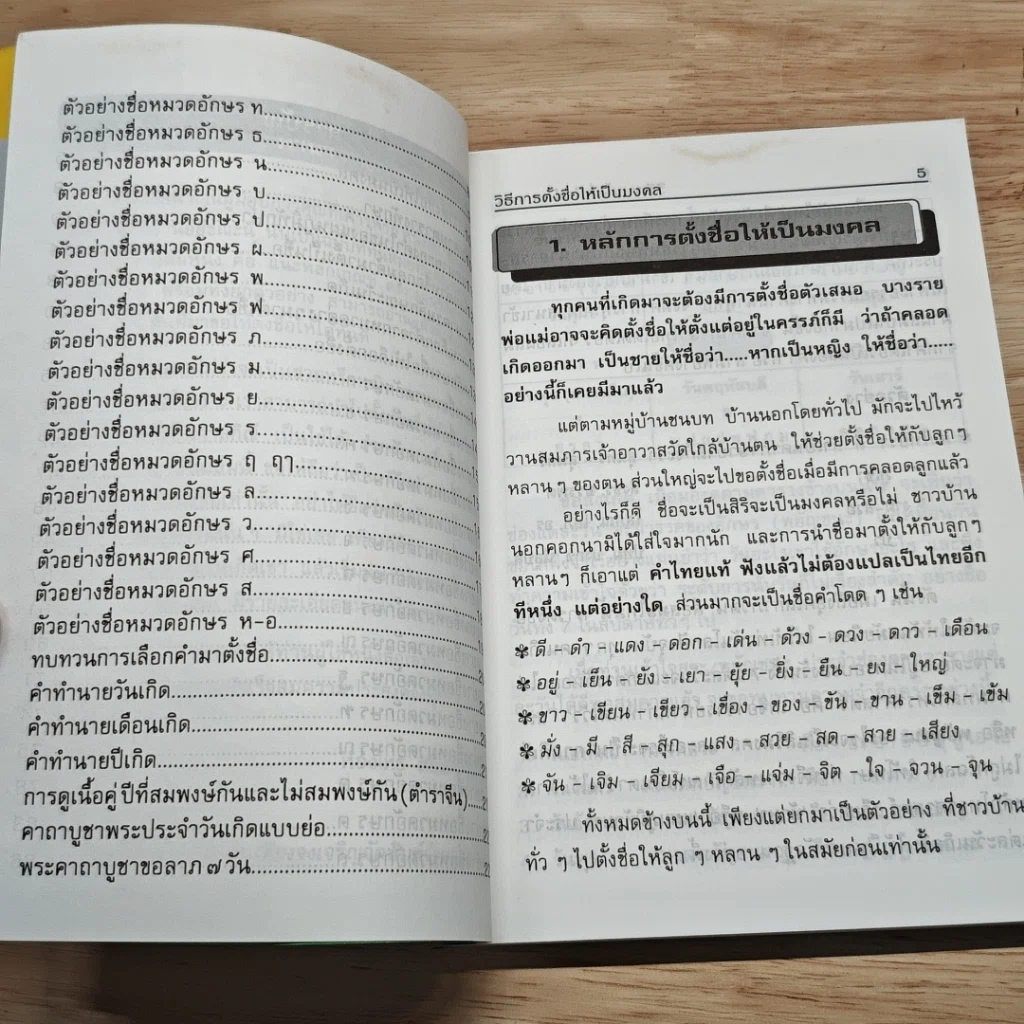 ตัวอย่างชื่อหมวดอักษร ท
ตัวอย่างชื่อหมวดอักษร ธ
ตัวอย่างชื่อหมวดอักษร น
ตัวอย่างชื่อหมวดอักษร บ
ตัวอย่างชื่อหมวดอักษร ป
ตัวอย่างชื่อหมวดอักษร ผ
ตัวอย่างชื่อหมวดอักษร พ
ตัวอย่างชื่อหมวดอักษร ฟ
ตัวอย่างชื่อหมวดอักษร ภ
ตัวอย่างชื่อหมวดอักษร ม
ตัวอย่างชื่อหมวดอักษร ย
ตัวอย่างชื่อหมวดอักษร ร
ตัวอย่างชื่อหมวดอักษร ฤ ฤๅ
ตัวอย่างชื่อหมวดอักษร ล
ตัวอย่างชื่อหมวดอักษร ว
ตัวอย่างชื่อหมวดอักษร ศ
ตัวอย่างชื่อหมวดอักษร ส
ตัวอย่างชื่อหมวดอักษร ห-อ
ทบทวนการเลือกคำมาตั้งชื่อ
คำทำนายวันเกิด
คำทำนายเดือนเกิด
คำทำนายปีเกิด
การดูเนื้อคู่ ปีที่สมพงษ์กันและไม่สมพงษ์กัน (ตำราจีน)
คาถาบูชาพระประจำวันเกิดแบบย่อ
พระคาถาบูชาขอลาภ ๗ วัน
วิธีการตั้งชื่อให้เป็นมงคล 5
1. หลักการตั้งชื่อให้เป็นมงคล
ทุกคนที่เกิดมาจะต้องมีการตั้งชื่อตัวเสมอ บางราย
พ่อแม่อาจจะคิดตั้งชื่อให้ตั้งแต่อยู่ในครรภ์ก็มี ว่าถ้าคลอด
เกิดออกมา เป็นชายให้ชื่อว่า.....หากเป็นหญิง ให้ชื่อว่า.....
อย่างนี้ก็เคยมีมาแล้ว
แต่ตามหมู่บ้านชนบท บ้านนอกโดยทั่วไป มักจะไปไหว้
วานสมภารเจ้าอาวาสวัดใกล้บ้านตน ให้ช่วยตั้งชื่อให้กับลูกๆ
หลาน ๆ ของตน ส่วนใหญ่จะไปขอตั้งชื่อเมื่อมีการคลอดลูกแล้ว
อย่างไรก็ดี ชื่อจะเป็นสิริจะเป็นมงคลหรือไม่ ชาวบ้าน
นอกคอกนามิได้ใส่ใจมากนัก และการนำชื่อมาตั้งให้กับลูกๆ
หลานๆ ก็เอาแต่ คำไทยแท้ ฟังแล้วไม่ต้องแปลเป็นไทยอีก
ทีหนึ่ง แต่อย่างใด ส่วนมากจะเป็นชื่อคำโดด ๆ เช่น
✾ ดี – ดำ – แดง – ดอก – เด่น – ด้วง – ดวง – ดาว – เดือน
✾ อยู่ – เย็น – ยัง – เยา – ยุ้ย – ยิ่ง – ยืน – ยง – ใหญ่
✾ ขาว – เขียน – เขียว – เขื่อง – ของ – ขัน – ขาน – เข็ม – เข้ม
✾ มั่ง – มี – สี – สุ้ก – แสง – สวย – สด – สาย – เสียง
✾ จัน – เจิม – เจียม – เจือ – แจ่ม – จิต – ใจ – จวน – จุน
ทั้งหมดข้างบนนี้ เพียงแต่ยกมาเป็นตัวอย่าง ที่ชาวบ้าน
ทั่ว ๆ ไปตั้งชื่อให้ลูก ๆ หลาน ๆ ในสมัยก่อนเท่านั้น